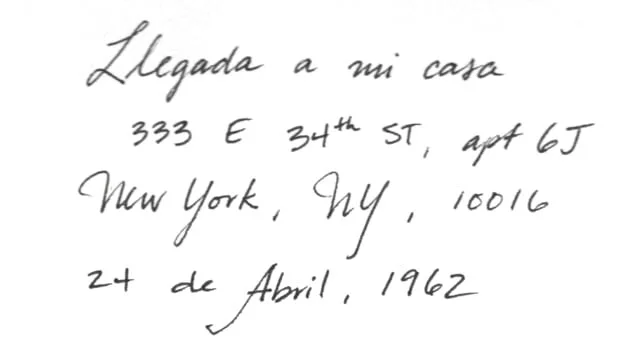 Llegada a mi casa
333 E 34th ST, apt 6J
New York, NY, 10016
24 de Abril, 1962